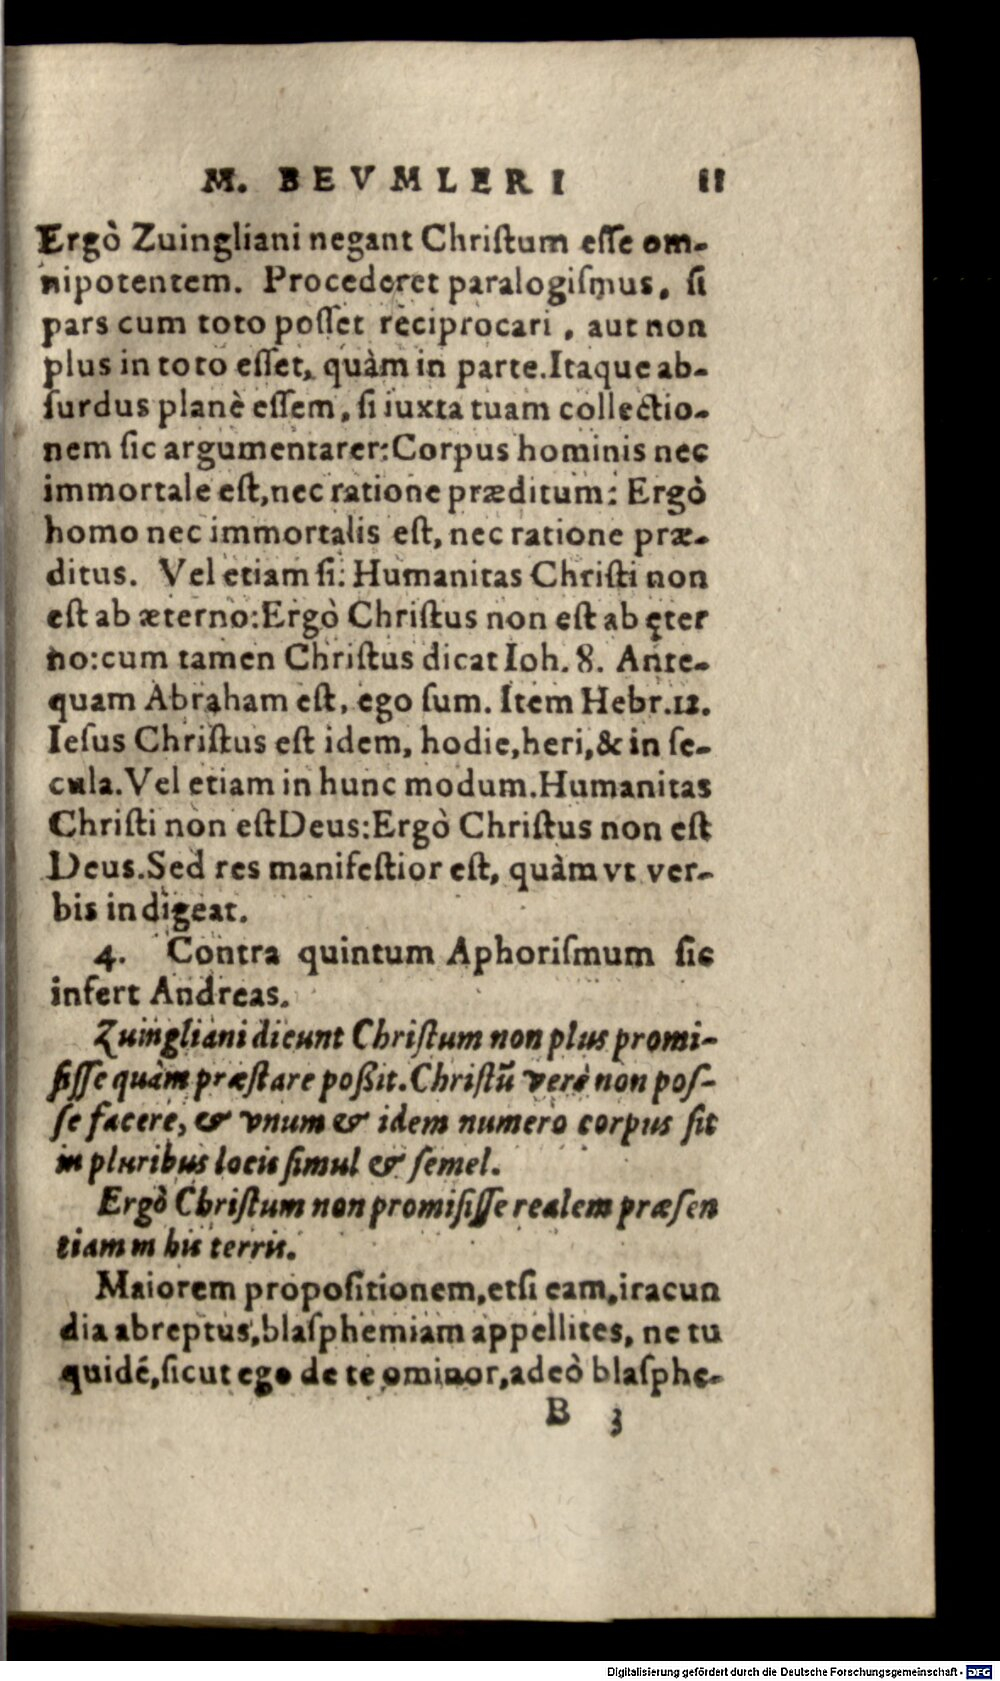 M. BEVMLERI 11
Ergò Zuingliani negant Chriſtum eſſe om-
nipotentem. Procederet paralogiſmus, ſi
pars cum toto poſſet reciprocari, aut non
plus in toto eſſet, quàm in parte. Itaque ab-
ſurdus planè eſſem, ſi iuxta tuam collectio-
nem ſic argumentarer: Corpus hominis nec
immortale eſt, nec ratione præditum: Ergò
homo nec immortalis eſt, nec ratione præ-
ditus. Vel etiam ſi: Humanitas Chriſti non
eſt ab æterno: Ergò Chriſtus non eſt ab ęter
no: cum tamen Chriſtus dicat Ioh. 8. Ante-
quam Abraham eſt, ego ſum. Item Hebr. 12.
Ieſus Chriſtus eſt idem, hodie, heri, & in ſe-
cula. Vel etiam in hunc modum. Humanitas
Chriſti non eſt Deus: Ergò Chriſtus non eſt
Deus. Sed res manifeſtior eſt, quàm vt ver-
bis indigeat.
4. Contra quintum Aphoriſmum ſic
infert Andreas.
Zuingliani dicunt Chriſtum non plus promi-
ſiſſe quàm præſtare poßit. Chriſtũ verè non poſ-
ſe facere, & vnum & idem numero corpus ſit
in pluribus locis ſimul & ſemel.
Ergò Chriſtum non promiſiſſe realem præſen
tiam in his terris.
Maiorem propoſitionem, etſi eam, iracun
dia abreptus, blaſphemiam appellites, ne tu
quidé, ſicut ego de te ominor, adeò blaſphe-
B 3
Digitalisierung gefördert durch die Deutsche Forschungsgemeinschaft - DFG